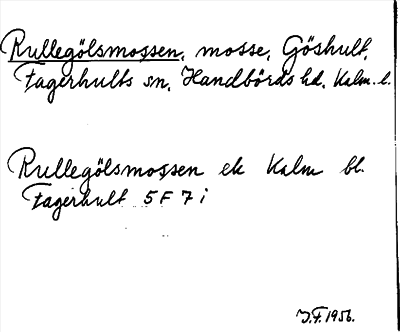 Rullegölsmossen, mosse, Göshult,
Fagerhults sn, Handbörds hd, Kalm. l.
Rullegölsmossen ek Kalm bl.
Fagerhult 5 F 7 i
J.F. 1956.